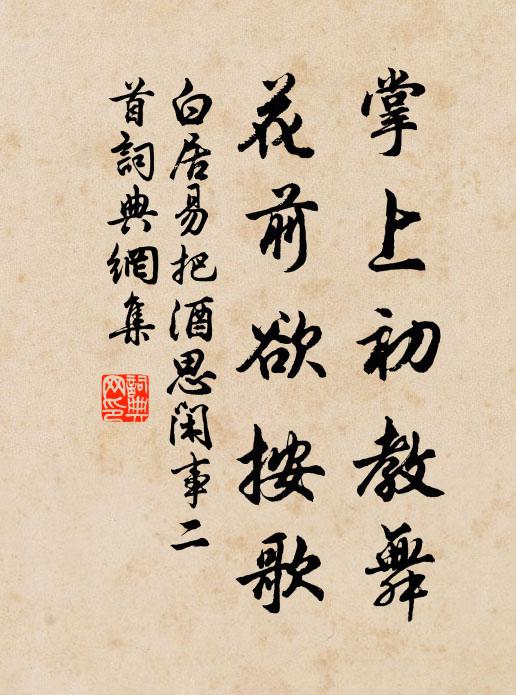 掌上初教舞
花前欲按歌
白居易把酒思閑事二
首詞典網集
詞典
网印